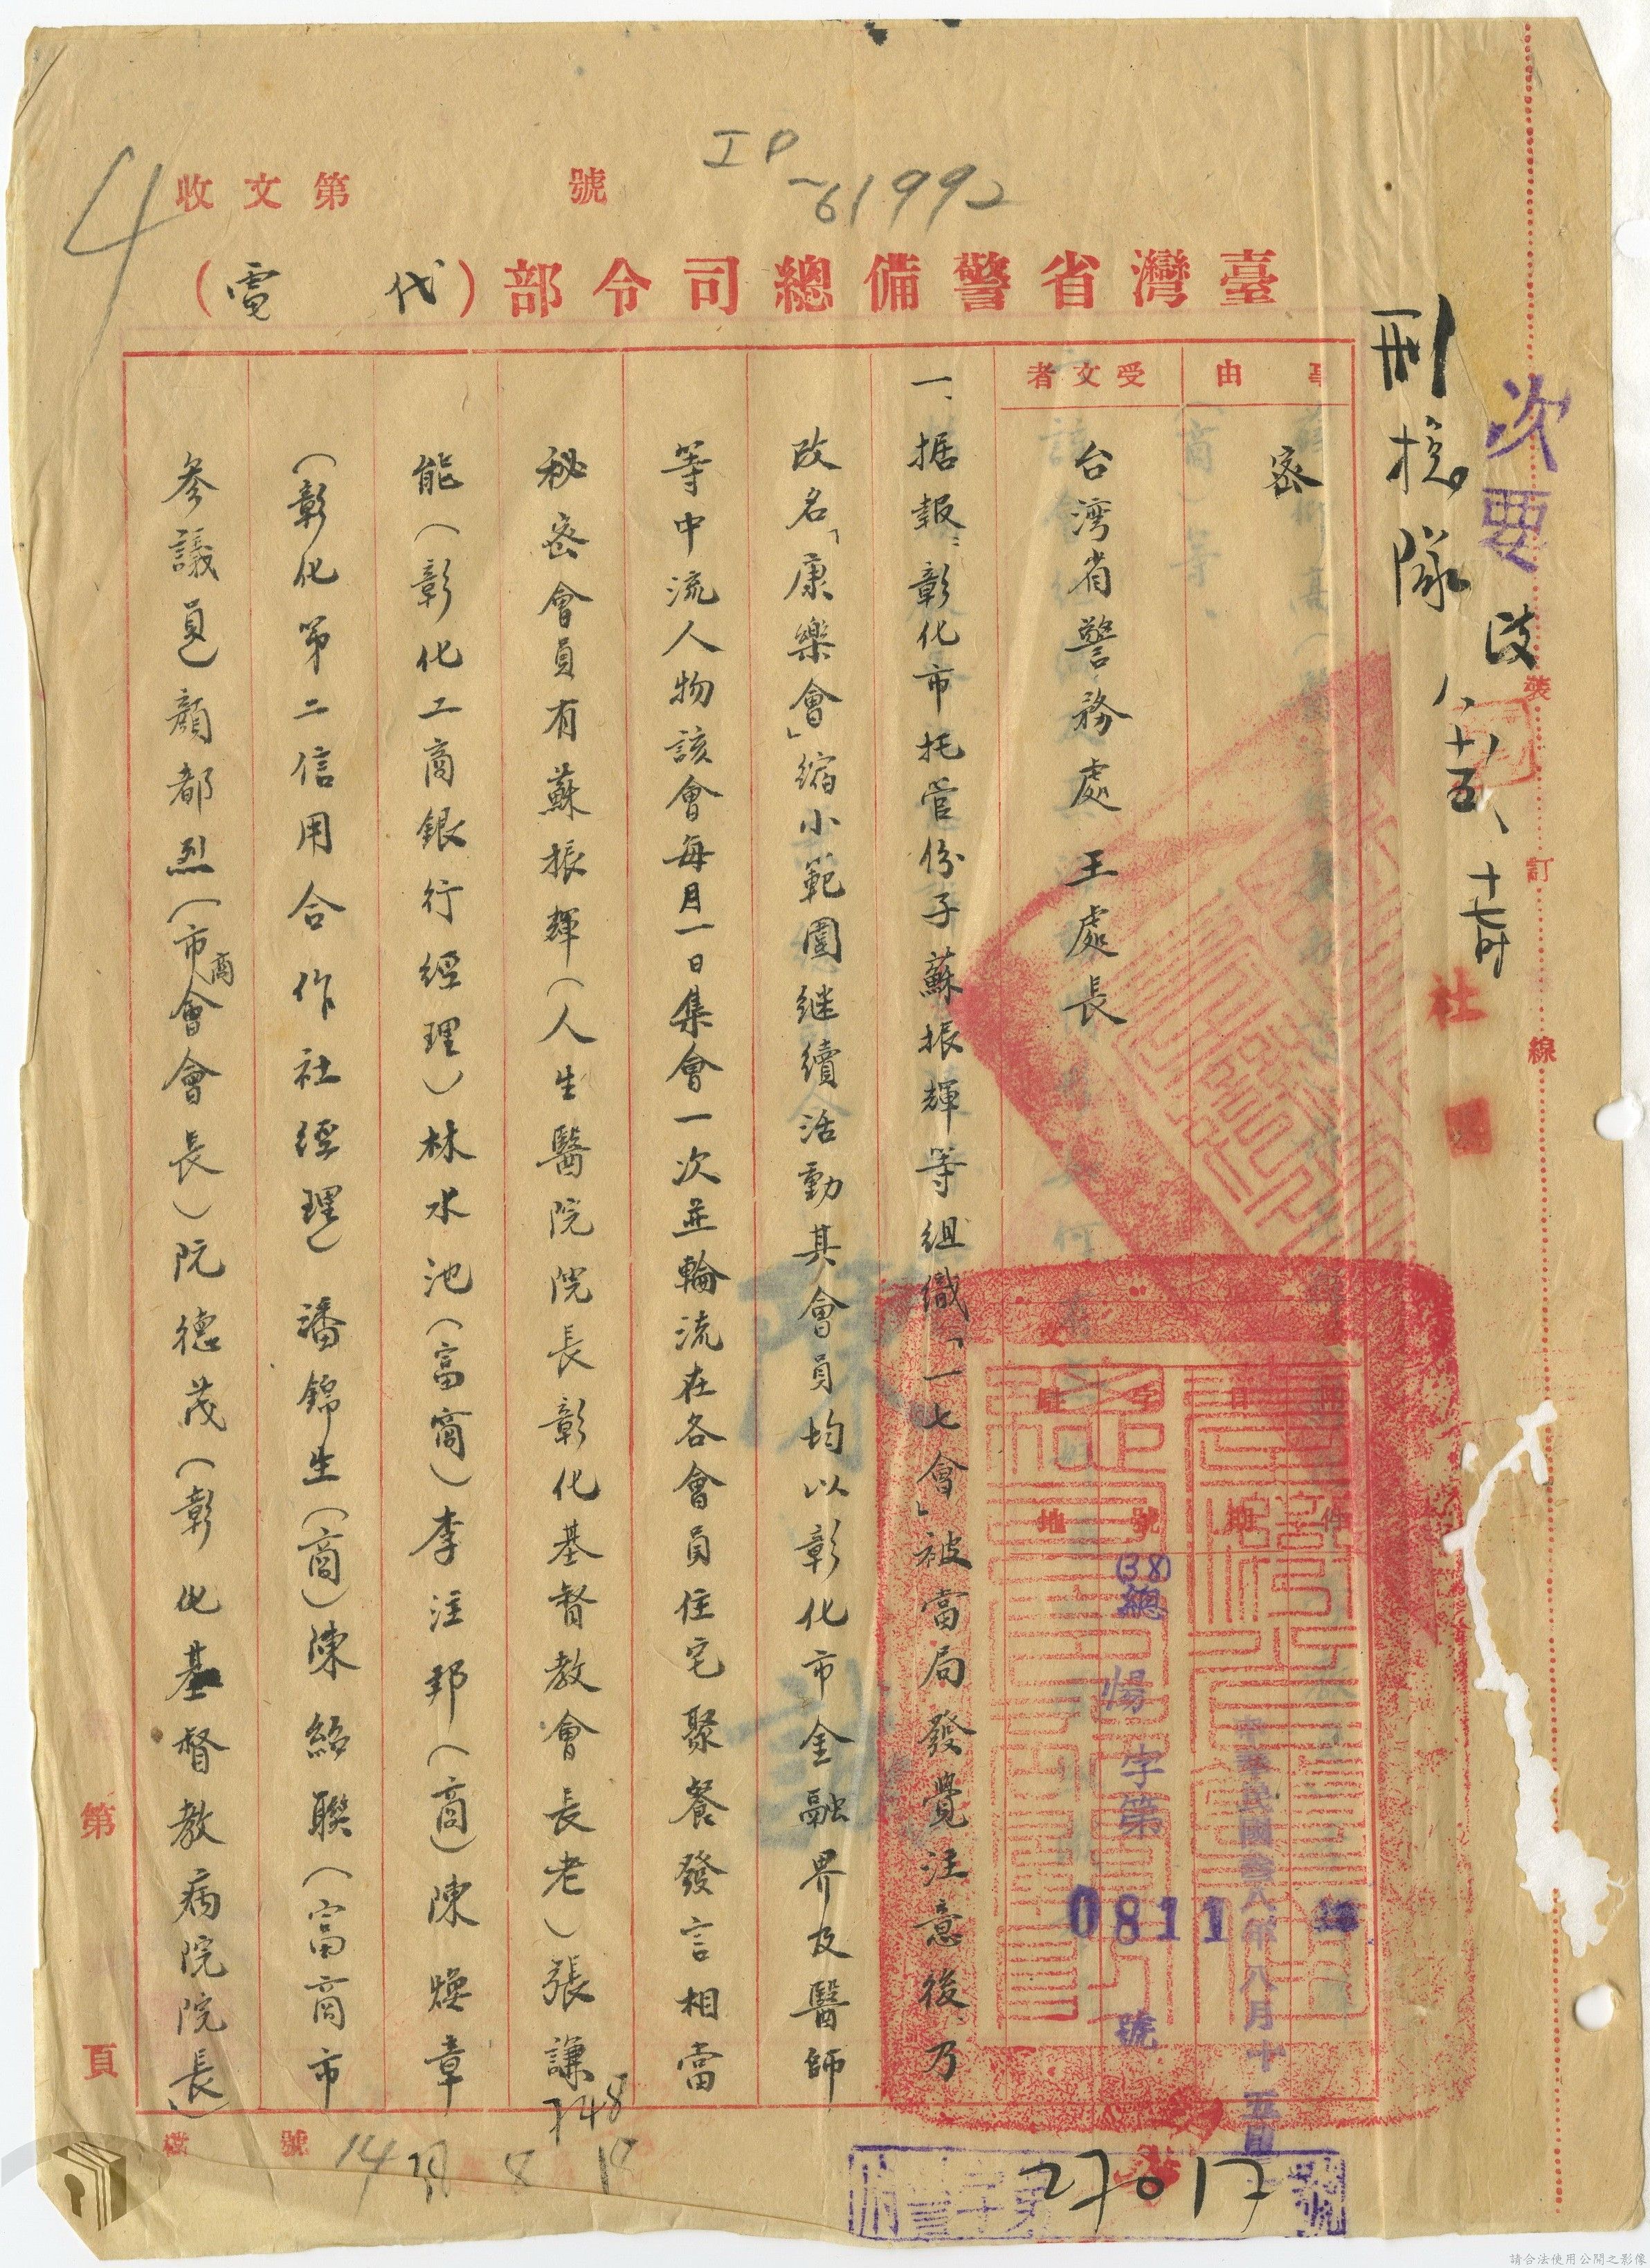 次要
刑总隊
ID-61992
4
收文第 號
臺灣省警備總司令部(代電)
事由
密
受文者
台湾省警務處 王處長
日期
中華民國叁八年八月十五日
字號
(38)總愓字第0811號
駐地
一、据報:彰化市托管份子蘇振輝等組織「一七會」被當局發覺注意後乃
改名「康樂會」縮小範圍继續活動其會員均以彰化市金融界及醫師
等中流人物該會每月一日集會一次並輪流在各會員住宅聚餐發言相當
秘密會員有蘇振輝(人生醫院院長彰化基督教會長老)張謙
能(彰化工商銀行經理)林水池(富商)李注邦(商)陳煥章
(彰化第二信用合作社經理)潘錦生(商)陳紹聯(富商市
参議員)顏都烈(市商會會長)阮德茂(彰化基督教病院院長)
裝
訂
線
第 頁
檔號
748
14 8 18
27017
請合法使用公開之影像